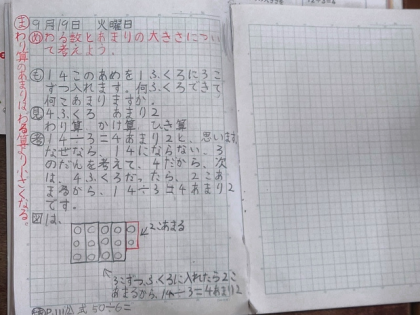 ま
わり算のあまりはわる算より小さくなる。
9月19日 火曜日
め わる数とあまりの大きさについ
て考えよう。
も 14このあめを1ふくろに3こ
ずつ入れます。何ふくろできて
何こあまりますか。
見 4ふくろ あまり2
わり算 かけ算 ひき算
考 14÷3=4あまり2と、思います。
なぜなら、14にならない、3
のだんを考えて、4だから、次
は、4ふくろだったら、2こあ
まるから、14÷3は4あまり2
です。
図は、
2こあまる
3こずつふくろに入れたら2こ
あまるから、14÷3=4あまり2
P.111 式50÷6=